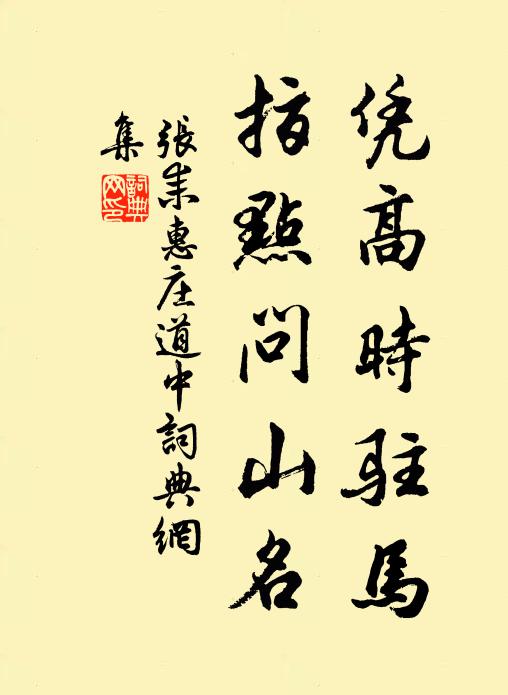 凭高時駐馬
指點問山名
張耒惠庄道中詞典網
集
詞典
网印